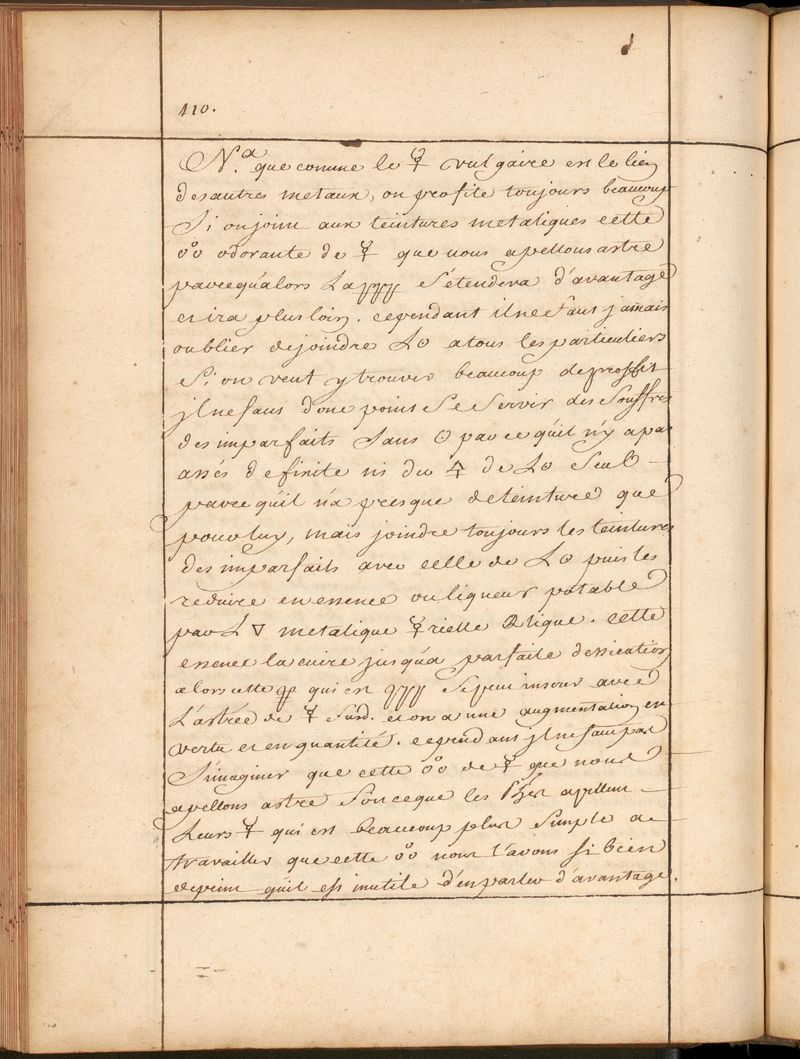 110.
N.a que comme le ☿ vulgaire est le lien
des autres metaux, on profite toujours beaucoup
Si on joint aux teintures metaliques cette
o°o odorante de ☿ que nous apellons astre
parcequ'alors La s'étendera d'avantage
et ira plus loin. cependant il ne faut jamais
oublier de joindre L☉ a tous les particuliers
Si on veut y trouver beaucoup de proffit
jl ne faut donc point Se Servir des Souffres
des imparfaits Sans ☉ parce qu'il n'y a pas
assés de fixité ni du 🜍 de L☉ Seul
parce qu'il n'a presque de teinture que
pour luy, mais joindre toujours les teintures
des imparfaits avec celle de L☉ puis les
reduire en essence ou liqueur potable
par L 🜄 metalique ☿rielle. cette
essence la cuire jusqu'a parfaite dessication
alors cette qui est Se peut inserer avec
L'astre de ☿ Susd. et on a une augmentation en
vertu et en quantité. cependant jl ne faut pas
S'imaginer que cette o°o de ☿ que nous
apellons astre Soit ce que les Phes apellent
Leurs ☿ qui est beaucoup plus Simple a
travailler que cette o°o nous l'avons si bien
depeint qu'il est inutile d'en parler d'avantage.